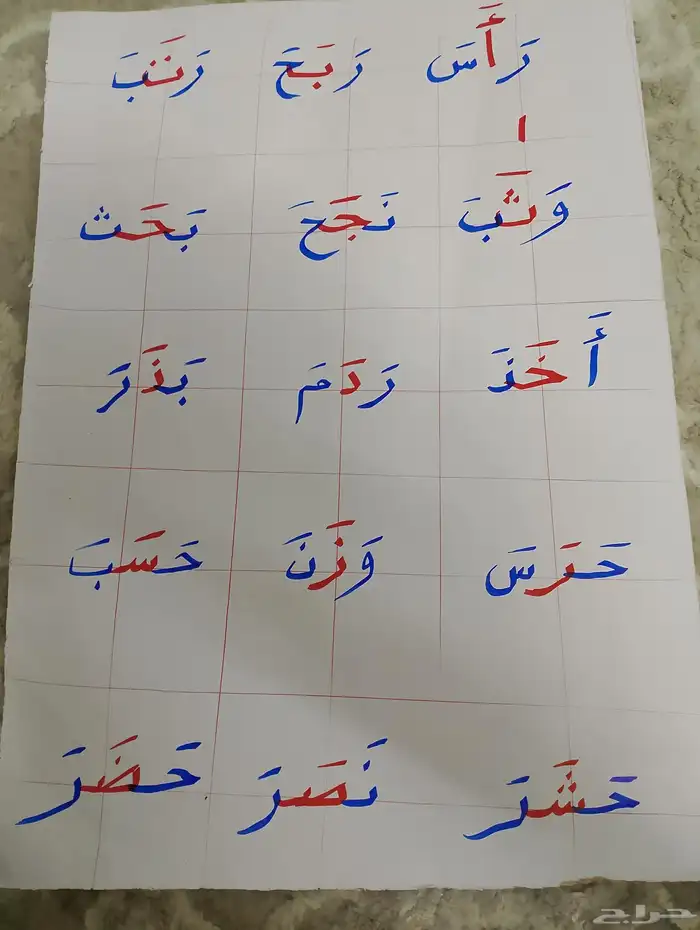 رَأَسَ رَبَحَ رَتَبَ
وَثَبَ نَجَحَ بَحَث
أَخَذَ رَدَمَ بَذَرَ
حَرَسَ وَزَنَ حَسَبَ
حَشَرَ نَصَرَ حَضَرَ
حراج